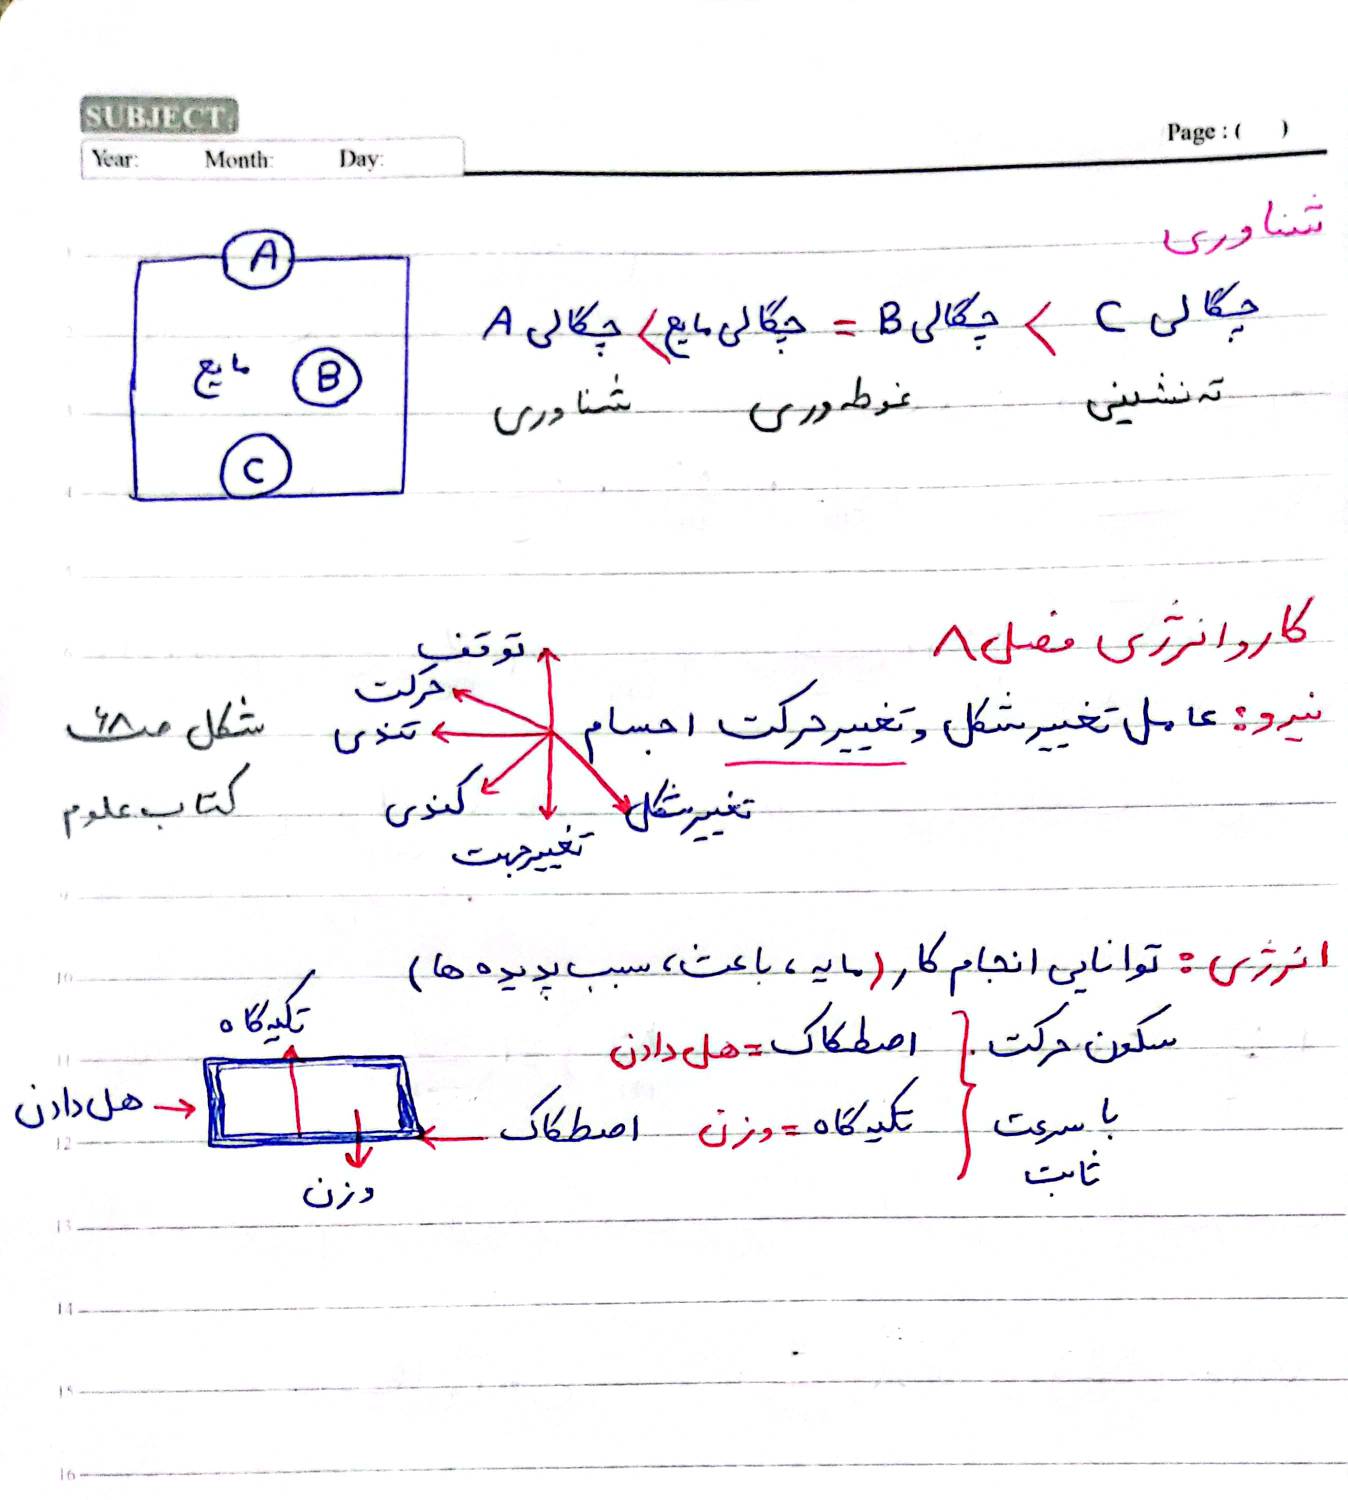 SUBJECT:
Year: Month: Day:
Page : ( )
شناوری
چگالی C > چگالی B = چگالی مایع > چگالی A
ته نشینی غوطه وری شناوری
A
مایع B
C
کار و انرژی فصل ۸
نیرو: عامل تغییر شکل و تغییر حرکت اجسام
توقف
حرکت
تندی
کندی
تغییر جهت
تغییر شکل
شکل ص ۶۸
کتاب علوم
انرژی: توانایی انجام کار (مایه، باعث، سبب پدیده ها)
سکون حرکت
با سرعت
ثابت
اصطکاک = هل دادن
تکیه گاه = وزن
تکیه گاه
هل دادن
اصطکاک
وزن
1
2
3
4
5
6
9
10
11
12
13
14
15
16